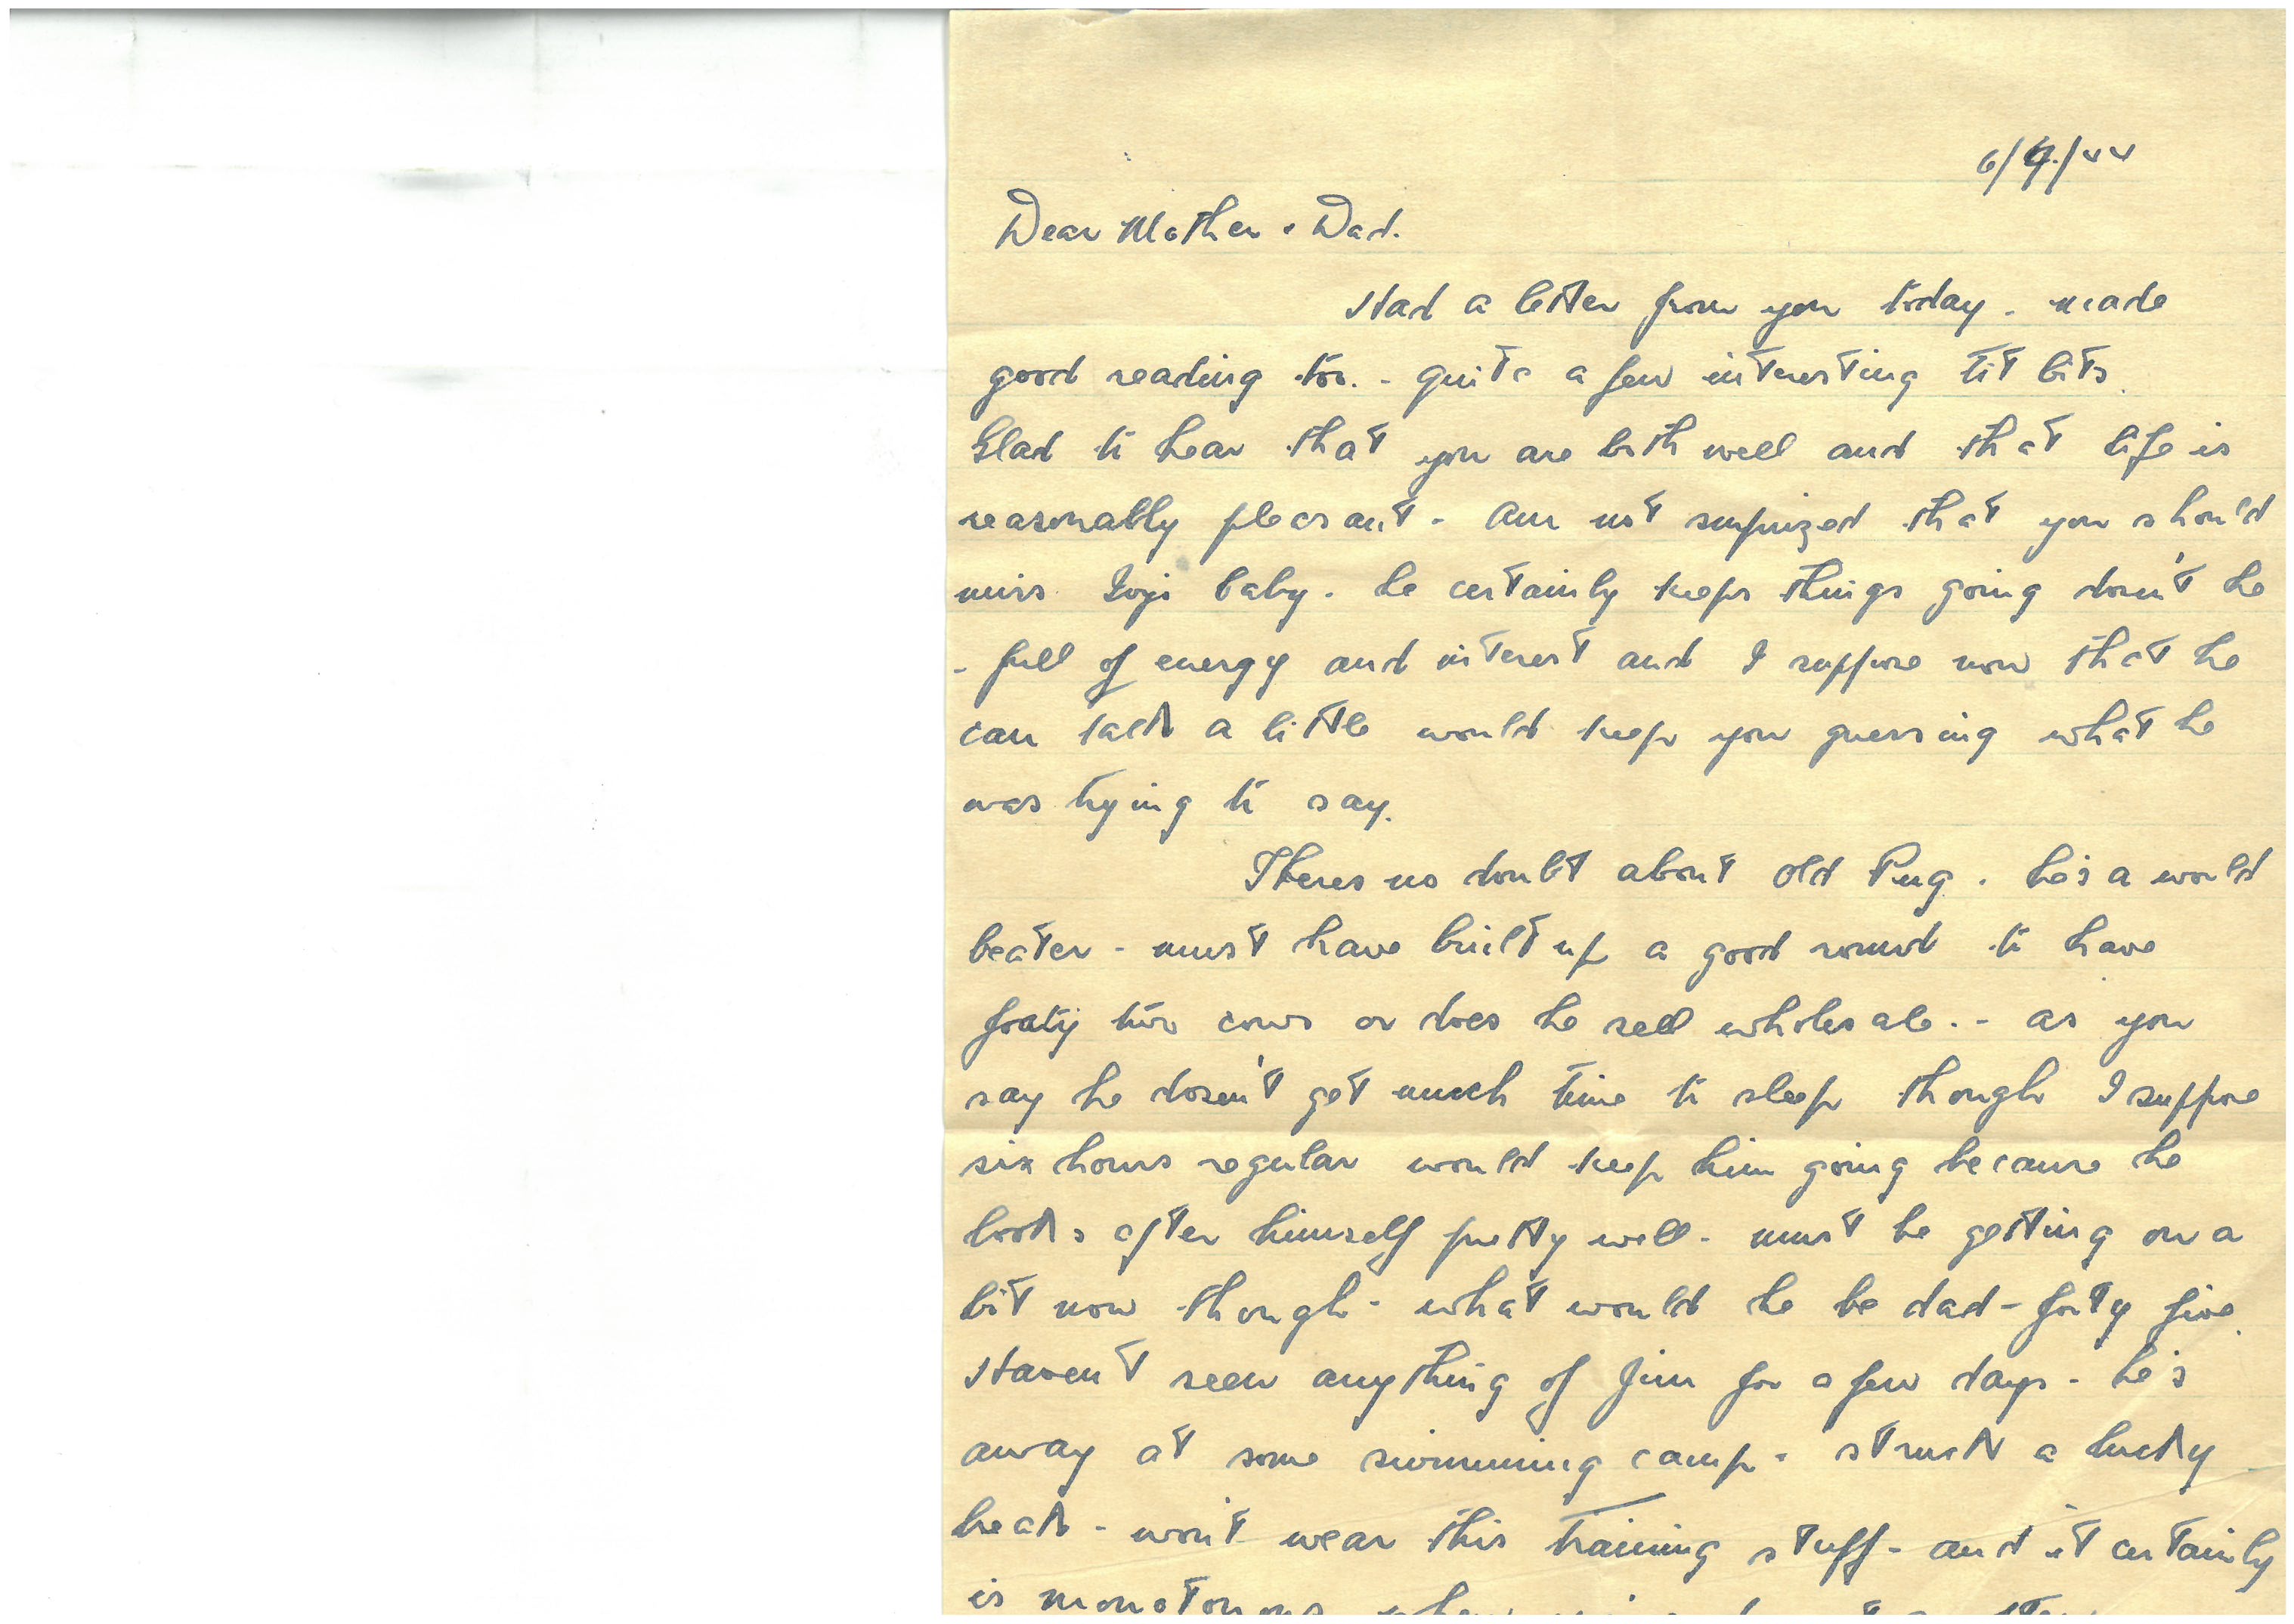 6/9/44
Dear Mother & Dad.
Had a letter from you today - made
good reading too. - quite a few interesting tit bits.
Glad to hear that you are both well and that life is
reasonably pleasant - am not surprized that you should
miss baby - he certainly keeps things going doesn't he
- full of energy and interest and I suppose now that he
can talk a little would keep you guessing what he
was trying to say.
Theres no doubt about old Pug - he's a world
beater - must have built up a good round to have
forty two cows or does he sell wholesale. - as you
say he dosen't get much time to sleep though I suppose
six hours regular would keep him going because he
looks after himself pretty well - must be getting on a
bit now though - what would he be dad - forty five.
Haven't seen anything of Jim for a few days - he's
away at some swimming camp - struck a lucky
break - won't wear this training stuff - and it certainly
is monotonous when